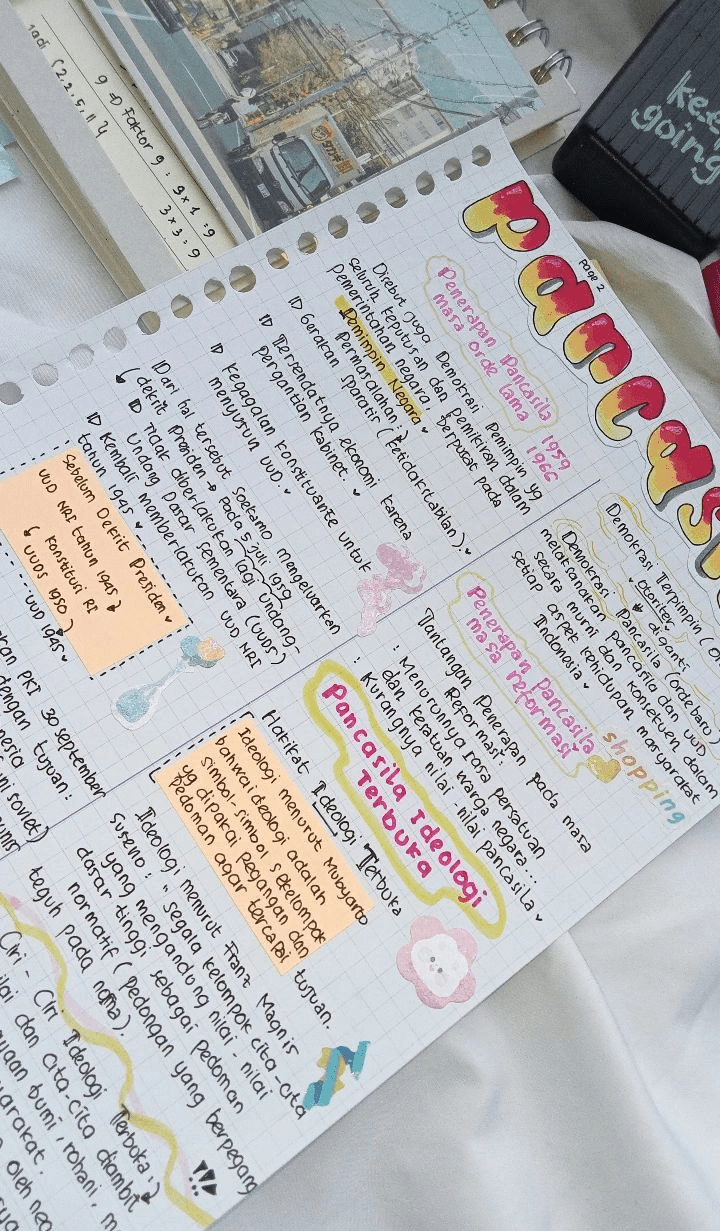 9 => Faktor 9 : 9 x 1 = 9
3 x 3 = 9
keep
going
page 2
pancas
Penerapan Pancasila
masa orde lama
1959
1966
Disebut juga Demokrasi Pemimpin yg
seluruh keputusan dan pemikiran dalam
pemerintahan negara berpusat pada
Pemimpin Negara
Permasalahan :
Gerakan Sparatis (ketidakstabilan)
Tersendatnya ekonomi karena
pergantian kabinet.
Kegagalan konstituante untuk
menyusun UUD.
Dari hal tersebut Soekarno mengeluarkan
(dekrit Presiden → pada 5 juli 1959
Tidak diberlakukan lagi undang-
Undang Dasar Sementara (UUDS)
Kembali memberlakukan UUD NRI
tahun 1945
Sebelum Dekrit Presiden
UUD NRI tahun 1945
Konstitusi RI
( UUDS 1950 )
UUD 1945
PKI 30 september
dengan tujuan :
soviet)
Demokrasi Terpimpin
otoriter
diganti
Demokrasi Pancasila (orde baru)
melaksanakan pancasila dan UUD
secara murni dan konsekuen dalam
setiap aspek kehidupan masyarakat
Indonesia
Penerapan pancasila
masa reformasi
shopping
Tantangan Penerapan pada masa
Reformasi :
: Menurunnya rasa persatuan
dan kesatuan warga negara...
: Kurangnya nilai-nilai pancasila
Pancasila Ideologi
Terbuka
Hakikat Ideologi Terbuka
Ideologi menurut Mubyarto
bahwa ideologi adalah
simbol-simbol sekelompok
yg dipakai pegangan dan
pedoman agar tercapai tujuan.
Ideologi menurut Franz Magnis
Suseno : " segala kelompok cita-cita
yang mengandung nilai-nilai
dasar tinggi sebagai pedoman
normatif (pedongan yang berpegang
teguh pada noma).
Ciri - Ciri Ideologi Terbuka :
dan cita-cita diambil
bumi, rohani,
oleh